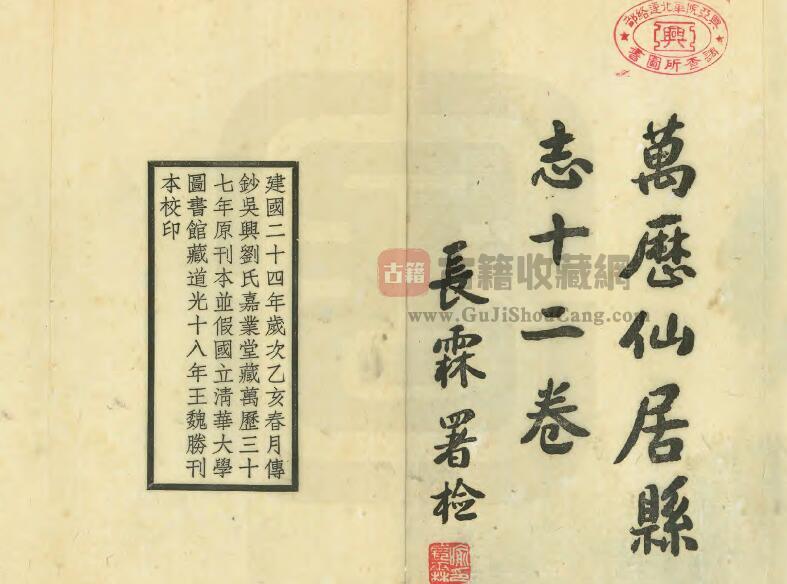 萬歷仙居縣
志十二卷
長霖署檢
建國二十四年歲次乙亥春月傳
鈔吳興劉氏嘉業堂藏萬歷三十
七年原刊本並假國立清華大學
圖書館藏道光十八年王魏勝刊
本校印
興亞院華北連絡部
興
調查所圖書
古籍
古籍收藏網
www.GuJiShouCang.com